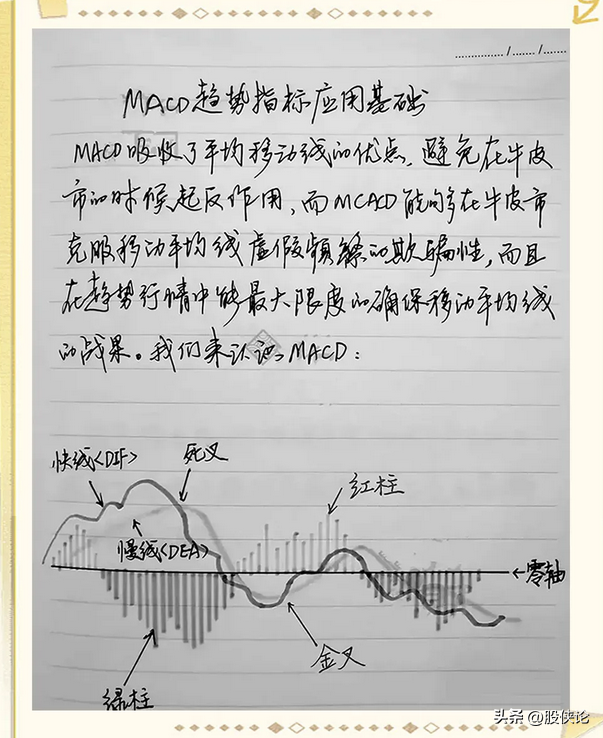 ....../....../......
MACD趋势指标应用基础
MACD吸收了平均移动线的优点,避免在牛皮
市的时候起反作用,而MCACD能够在牛皮市
克服移动平均线虚假频繁的欺骗性,而且
在趋势行情中能最大限度的确保移动平均线
的战果。我们来认识MACD:
快线<DIF>
死叉
红柱
慢线<DEA>
零轴
金叉
绿柱
头条 @股侠论